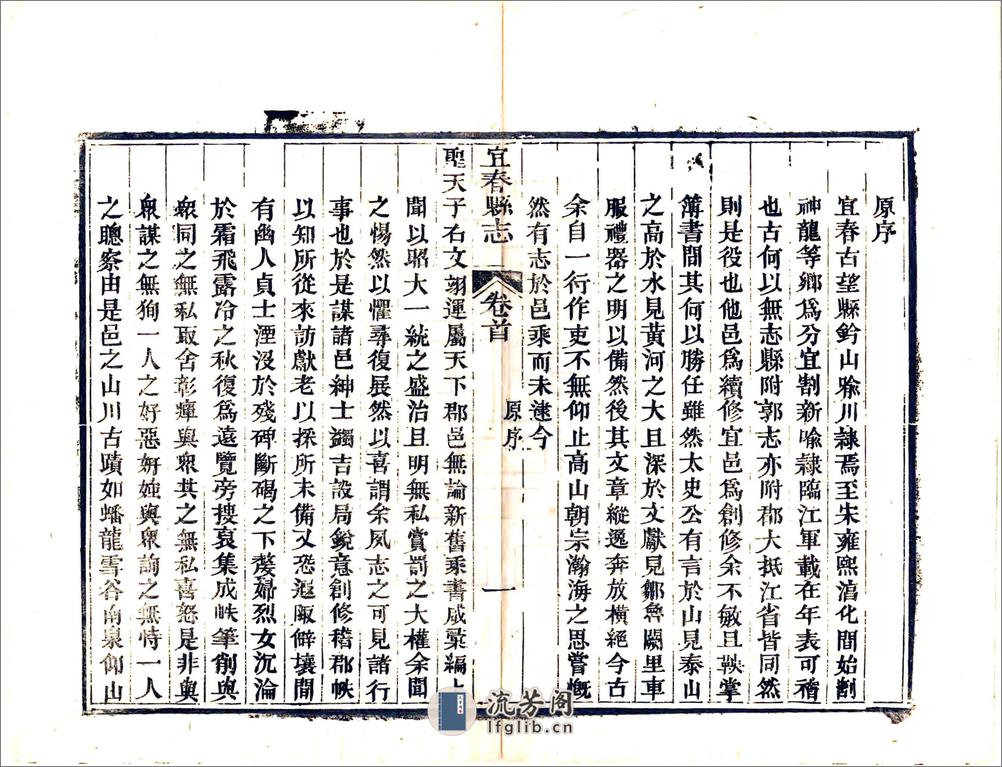 原序
宜春古望縣鈐山瑜川隸焉至朱雍熙淯化間始割
神龍等鄉爲分宜割新喻隸臨江軍載在年表可稽
也古何以無志縣附郭志亦附郡大抵江省皆同然
則是役也他邑爲續修宜邑爲創修余不敏且鞅掌
簿書間其何以勝任雖然太史公有言於山見泰山
之高於水見黃河之大且深於文獻見鄒魯闕里車
服禮器之明以備然後其文章縱逸奔放橫絕今古
余自一行作吏不無仰止高山朝宗瀚海之思嘗慨
然有志於邑乘而未逮今
宜春縣志 卷首 原序 一
聖天子右文翊運屬天下郡邑無論新舊乘書咸彚編上
聞以昭大一統之盛治且明無私賞罰之大權余聞
之惕然以懼尋復展然以喜謂余夙志之可見諸行
事也於是謀諸邑紳士蠲吉設局銳意創修稽郡帙
以知所從來訪獻老以採所未備又恐遐陬僻壤間
有幽人貞士湮沒於殘碑斷碣之下嫠婦烈女沉淪
於霜飛露冷之秋復爲遠覽旁搜裒集成帙筆削與
衆同之無私取舍彰癉與衆共之無私喜怒是非與
衆謀之無狥一人之好惡妍媸與衆詢之無恃一人
之聰察由是邑之山川古蹟如蟠龍雪谷南泉仰山
流芳阁
lfglib.cn